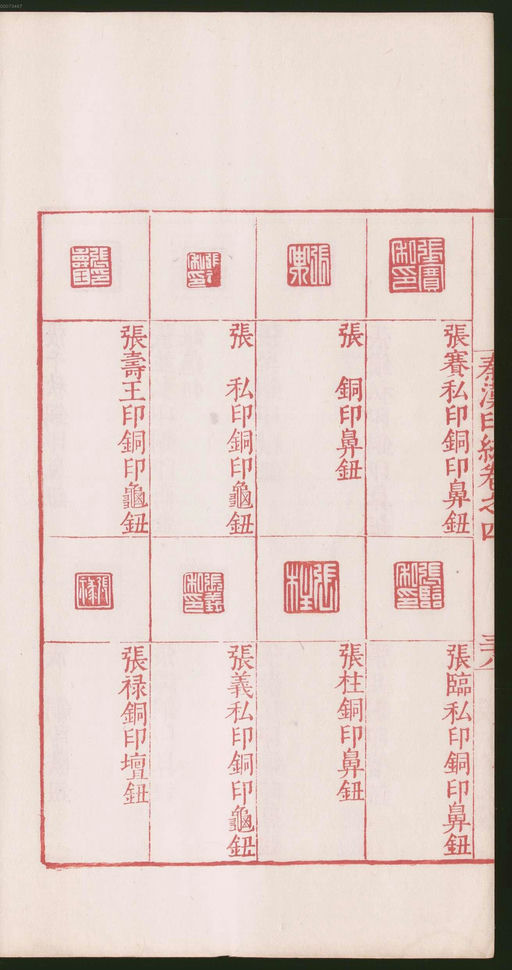 秦漢印統卷之四
三八
張賽私印銅印鼻鈕
張　銅印鼻鈕
張　私印銅印龜鈕
張壽王印銅印龜鈕
張臨私印銅印鼻鈕
張柱銅印鼻鈕
張義私印銅印龜鈕
張禄銅印壇鈕